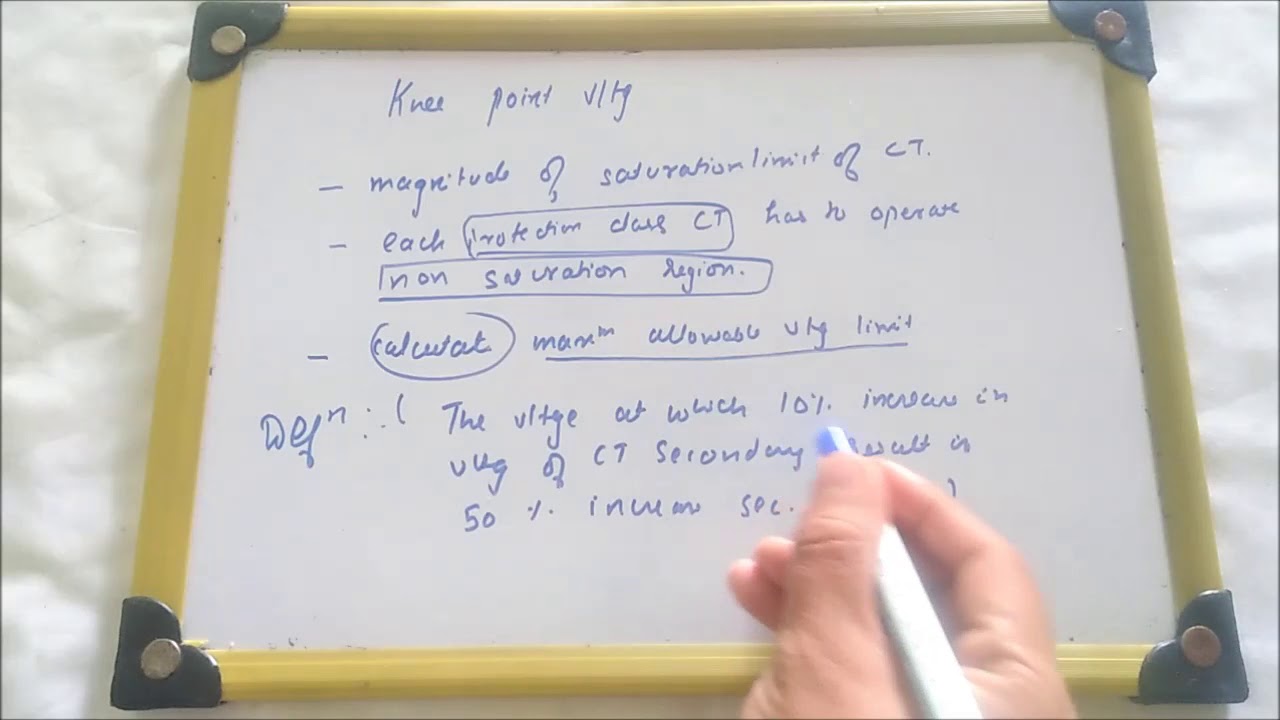 Knee point vltg
- magnitude of saturation limit of CT.
- each protection class CT has to operate
non saturation region.
- calculate maxm allowable vltg limit
Defn :- ( The vltge at which 10% increase in
vltg of CT Secondary result in
50 % increase sec. )